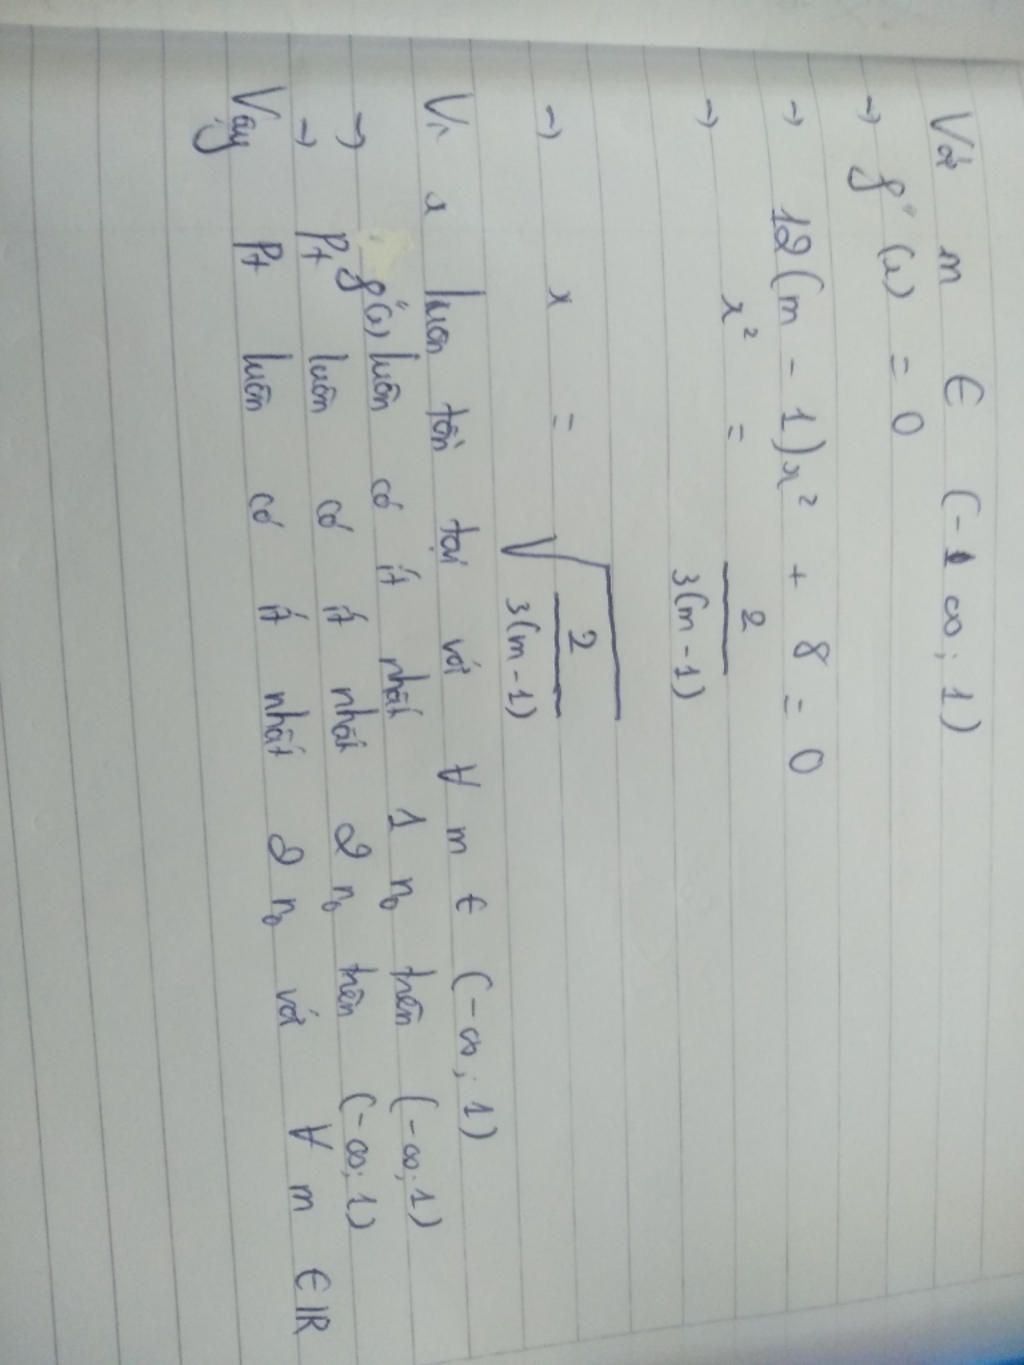 Với m ∈ (-∞; 1)
→ f''(x) = 0
→ 12(m - 1)x² + 8 = 0
→ x² = 2/3(m - 1)
→ x = √(2/3(m - 1))
Vì x luôn tồn tại với ∀ m ∈ (-∞; 1)
→ f''(x) luôn có ít nhất 1 n₀ trên (-∞; 1)
→ Pt luôn có ít nhất 2 n₀ trên (-∞; 1)
Vậy Pt luôn có ít nhất 2 n₀ với ∀ m ∈ ℝ